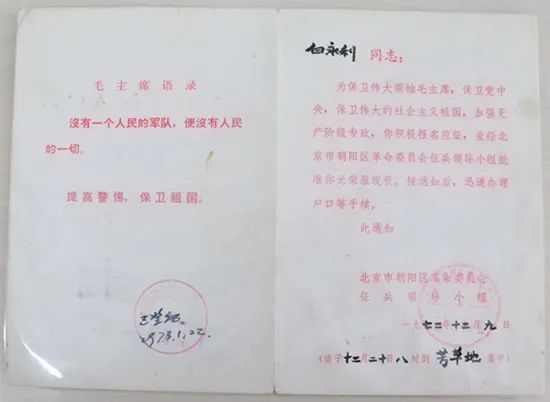 毛主席语录
沒有一个人民的军队，便沒有人民
的一切。
提高警惕，保卫祖国。
1973.1.22.
白永利 同志：
为保卫伟大领袖毛主席，保卫党中
央，保卫伟大的社会主义祖国，加强无
产阶级专政，你积极报名应征，业经北
京市朝阳区革命委员会征兵领导小组批
准你光荣服现役。接通知后，迅速办理
户口等手续。
此通知
北京市朝阳区革命委员会
征兵领导小组
一九七二年十二月九日
(请于十二月二十日八时到 芳草地 集中)